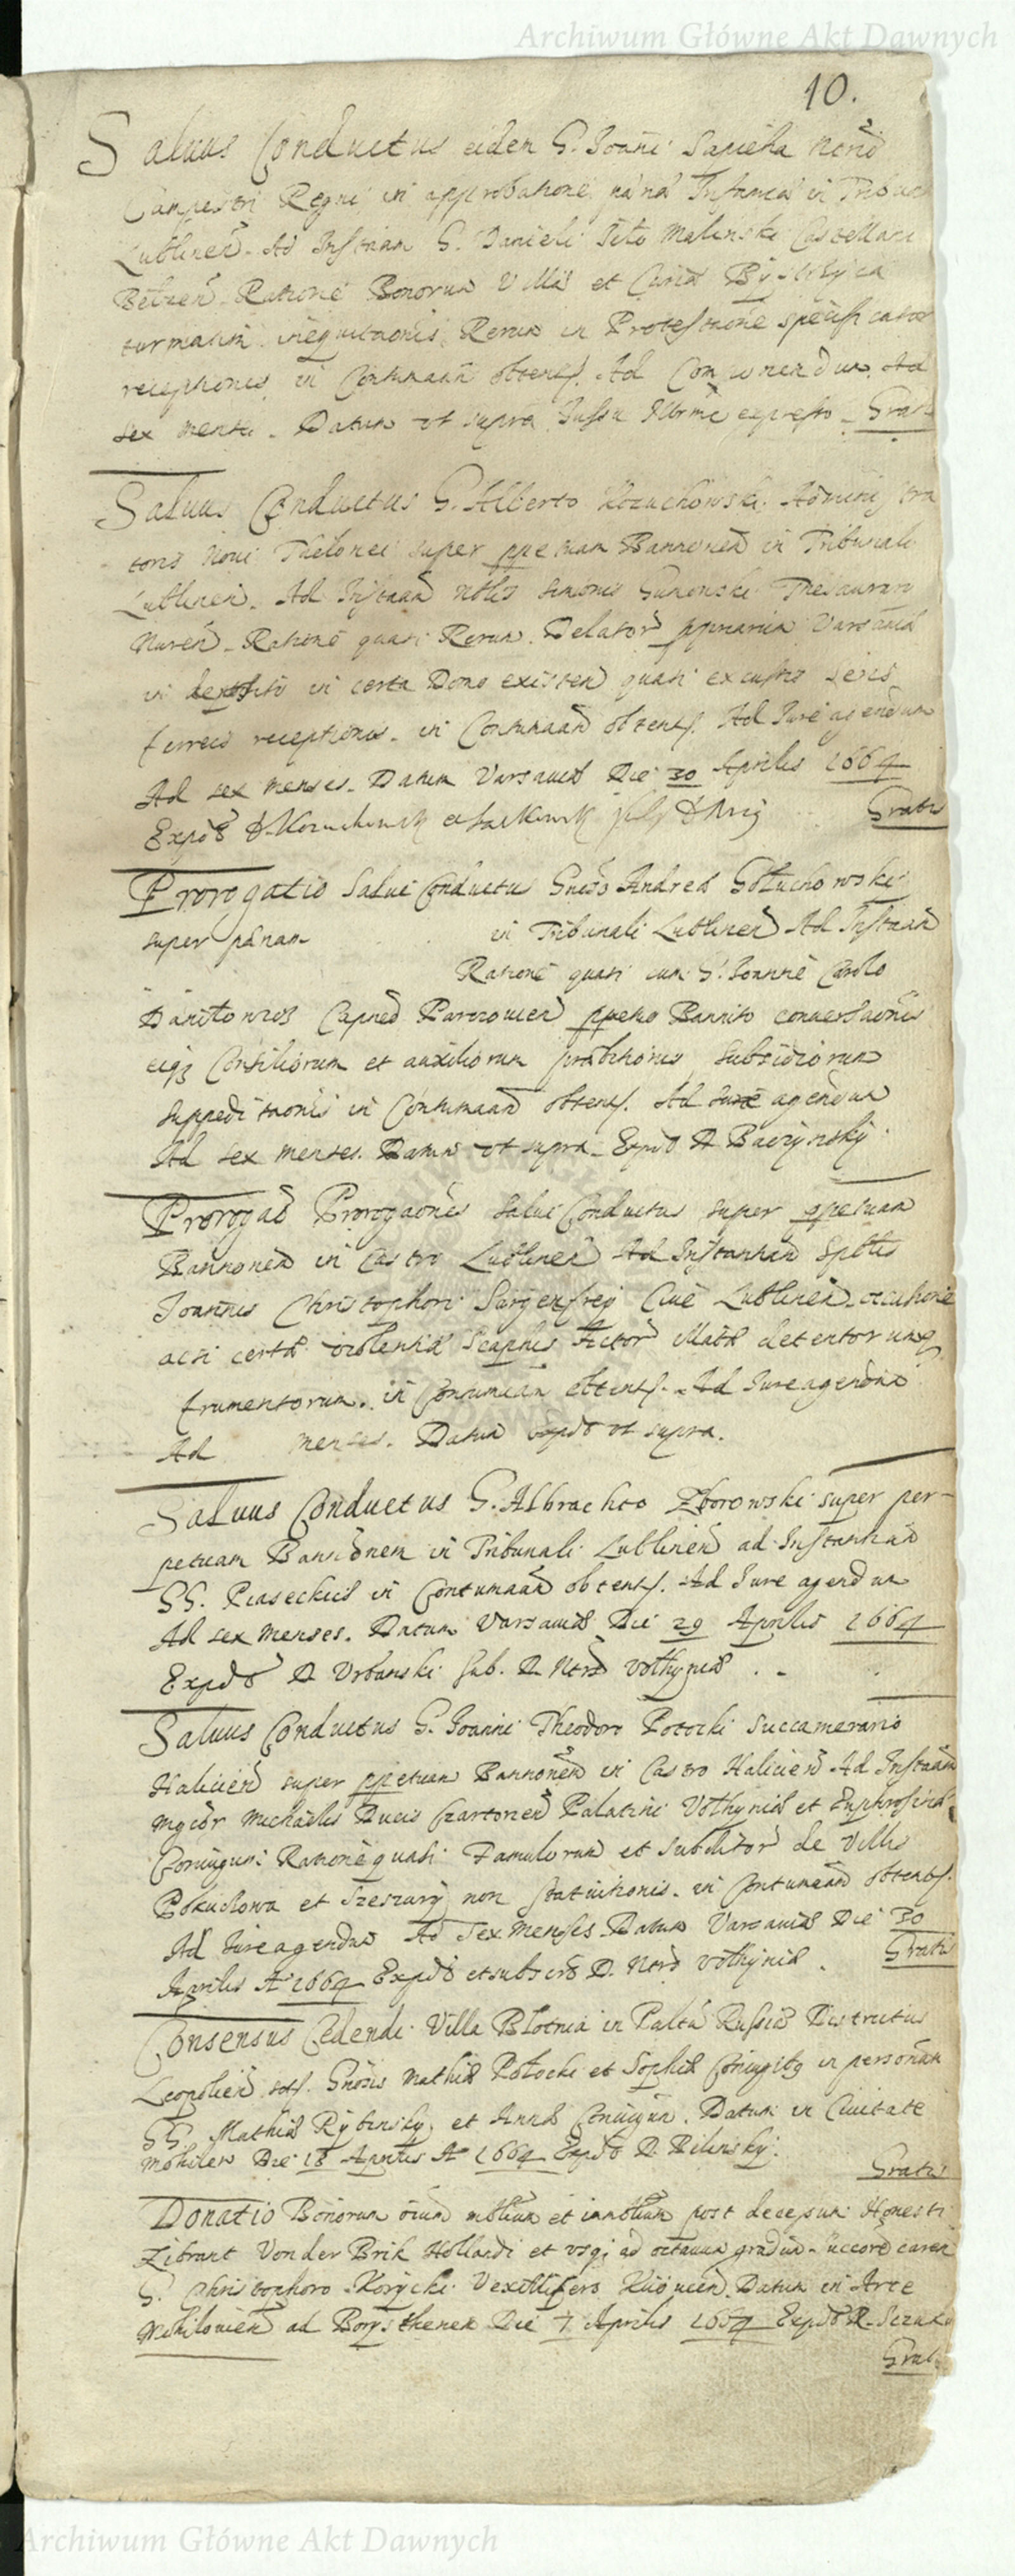 Archiwum Główne Akt Dawnych
10.
Salvus Conductus eidem G. Joanni Sapieha Notrio
Campestri Regni in approbatione Infamia in Tribun
Lublinen. Ad Instiam G. Danieli Jelo Malinski Castellani
Belzen Ratione Bonorum Villa et Curia Bystrzyca
turmatim inequitaonis, Rerum in Protestatione specificatar
receptionis in Contumaam obtent. Ad Componendum. Ad
sex menses. Datum ut supra Jussu expresso Grat
Salvus Conductus G. Alberto Kozuchowski Administra
toris Novi Thelonei super ppetuam Bannonem in Tribunali
Lublinen. Ad Instaam Nobls Simonis Gunowski Thesaurary
Nuren. Ratione quasi Rerum Delator Varsavia
in deposito in certa Domo existen quasi excussis seris
ferreis receptionis in Contumaam obtent. Ad Jure agendum
Ad sex menses. Datum Varsavia Die 30 Aprilis 1664
Expdt D. Kozuchowsky Gratis
Prorogatio Salvi Conductus Gnoso Andrea Gołuchowski
super pænam in Tribunali Lublinen Ad Instaam
Ratione quasi cum G. Joanne Carolo
Daniłowicz Capneo Parczovien ppetuo Bannito conversaonis
eiq3 Consiliorum et auxiliorum præbitionis subsidiorum
suppeditaonis in Contumaam obtent. Ad Jure agendum
Ad sex menses. Datum ut supra. Expdt D. Baczynsky
Prorogao Prorogaonis Salvi Conductus super ppetuam
Bannonem in Castro Lublinen Ad Instantiam Spblis
Joannis Christophori Surgenfrey Civi Lublinen occasione
acsi certa violentia Scaphis detentorumq3
frumentorum in Contumiam obtent. Ad Jure agendum
Ad menses. Datum expdt ut supra.
Salvus Conductus G. Albrachto Zborowski super per-
petuam Bannionem in Tribunali Lublinen ad Instantiam
GG. Piaseckich in Contumaam obtent. Ad Jure agendum
Ad sex menses. Datum Varsavia Die 29 Aprilis 1664
Expdt D. Urbanski Sub. D. Notr Volhynia
Salvus Conductus G. Joanni Theodoro Potocki Succamerario
Halicien super ppetuam Bannonem in Castro Halicien Ad Instaam
Mgcor Michaelis Ducis Czartorien Palatini Volhynia et Euphrosina
Coniugum Ratione quasi Famulorum et subditor de Villis
Pokuclowa et Szeszary non statuitionis in Contumaam obtent.
Ad Jure agendum Ad sex menses Datum Varsavia Die 30
Aprilis A 1664 Expdt et subscro D. Notr Volhynia. Gratis
Consensus Cedendi Villa Błotnia in Palatu Russia Districtus
Leopolien Gnosis Mathia Potocki et Sophia Coniugibq in personam
GG. Mathia Rybinsky et Anna Coniugum. Datum in Civitate
Mohilew Die 18 Aprilis A 1664 Expdt D. Bilinsky.
Gratis
Donatio Bonorum oium mobilium et immobilium post decessum Honesti
Zibrant Vonder Brik Hollandi et usq3 ad octavum gradum succore caren
G. Christophoro Korycki Vexillifero Kiiovien Datum in Arce
Mohilovien ad Borysthenem Die 7 Aprilis 1664 Expdt D.
Grat
Archiwum Główne Akt Dawnych